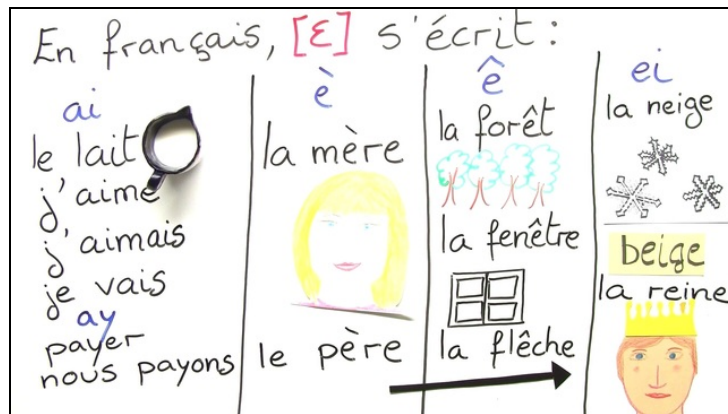 En français, [ɛ] s'écrit:
ai
le lait
j'aime
j'aimais
je vais
ay
payer
nous payons
è
la mère
le père
ê
la forêt
la fenêtre
la flêche
ei
la neige
beige
la reine